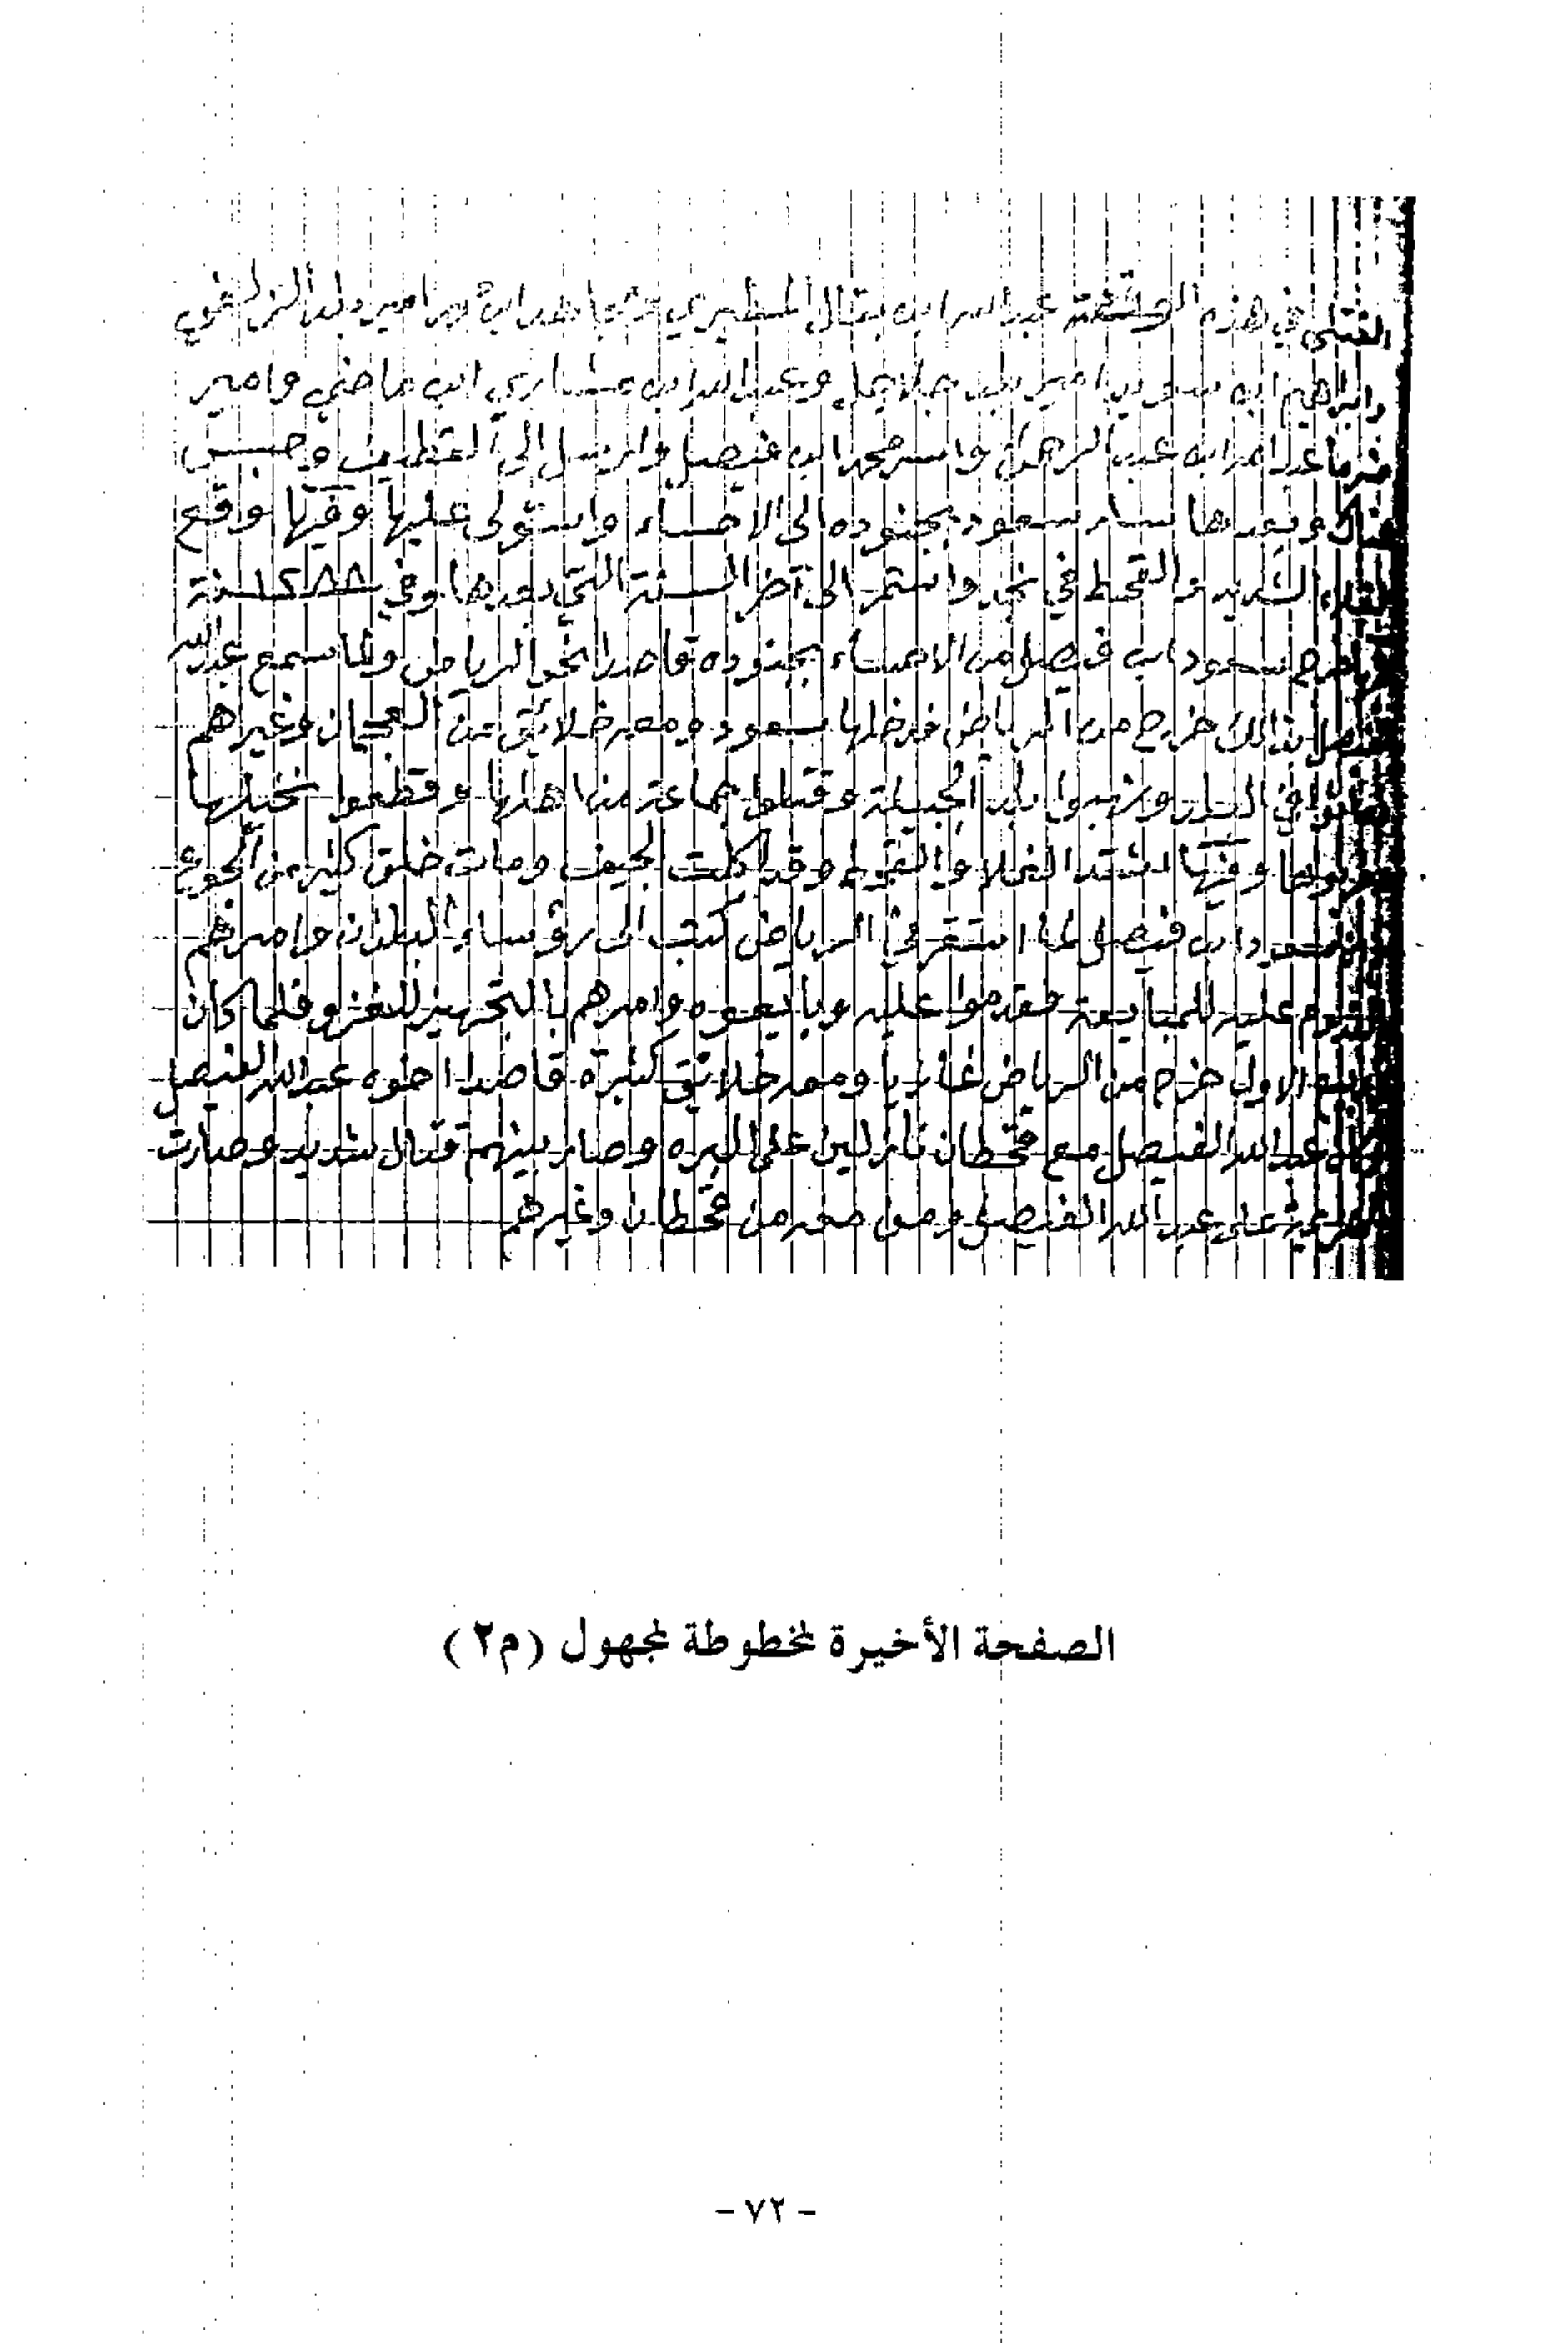 القتلى في هذه الوقعة عبدالله ابن بتال المطيري ومجاهد ابن امير بلد الزلفي
وابراهيم ابن سويد امير بلد جلاجل وعبدالله ابن مشاري ابن ماضي وامير
ضرما عبدالله ابن عبد الرحمن واسر محمد ابن فيصل وارسل الى القطيف وحبس
هناك وبعدها سار سعود بجنوده الى الاحساء واستولى عليها وفيها وقع
الغلاء الشديد والقحط في نجد واستمر الى آخر السنة التي بعدها وفي ١٢٨٨ سنة
خرج سعود ابن فيصل من الاحساء بجنوده قاصدا نحو الرياض ولما سمع عبدالله
بذالك خرج من الرياض فدخلها سعود ومعه خلائق من العجمان وغيرهم
في البلد ونهبوا بلد الجبيلة وقتلوا جماعة من اهلها وقطعوا نخيلها
وفيها اشتد الغلا والقحط وقد اكلت الجيف ومات خلق كثير من الجوع
سعود ابن فيصل لما استقر في الرياض كتب الى رؤساء البلدان وامرهم
بالقدوم عليه للمبايعة فقدموا عليه وبايعوه وامرهم بالتجهيز للغزو فلما كان
ربيع الاول خرج من الرياض غازيا ومعه خلائق كثيرة قاصدا اخوه عبدالله الفيصل
وكان عبدالله الفيصل مع قحطان نازلين على البره وصار بينهم قتال شديد وصارت
الهزيمة على عبدالله الفيصل ومن معه من قحطان وغيرهم
الصفحة الأخيرة لمخطوطة لمجهول (م٢)
- ٧٢ -